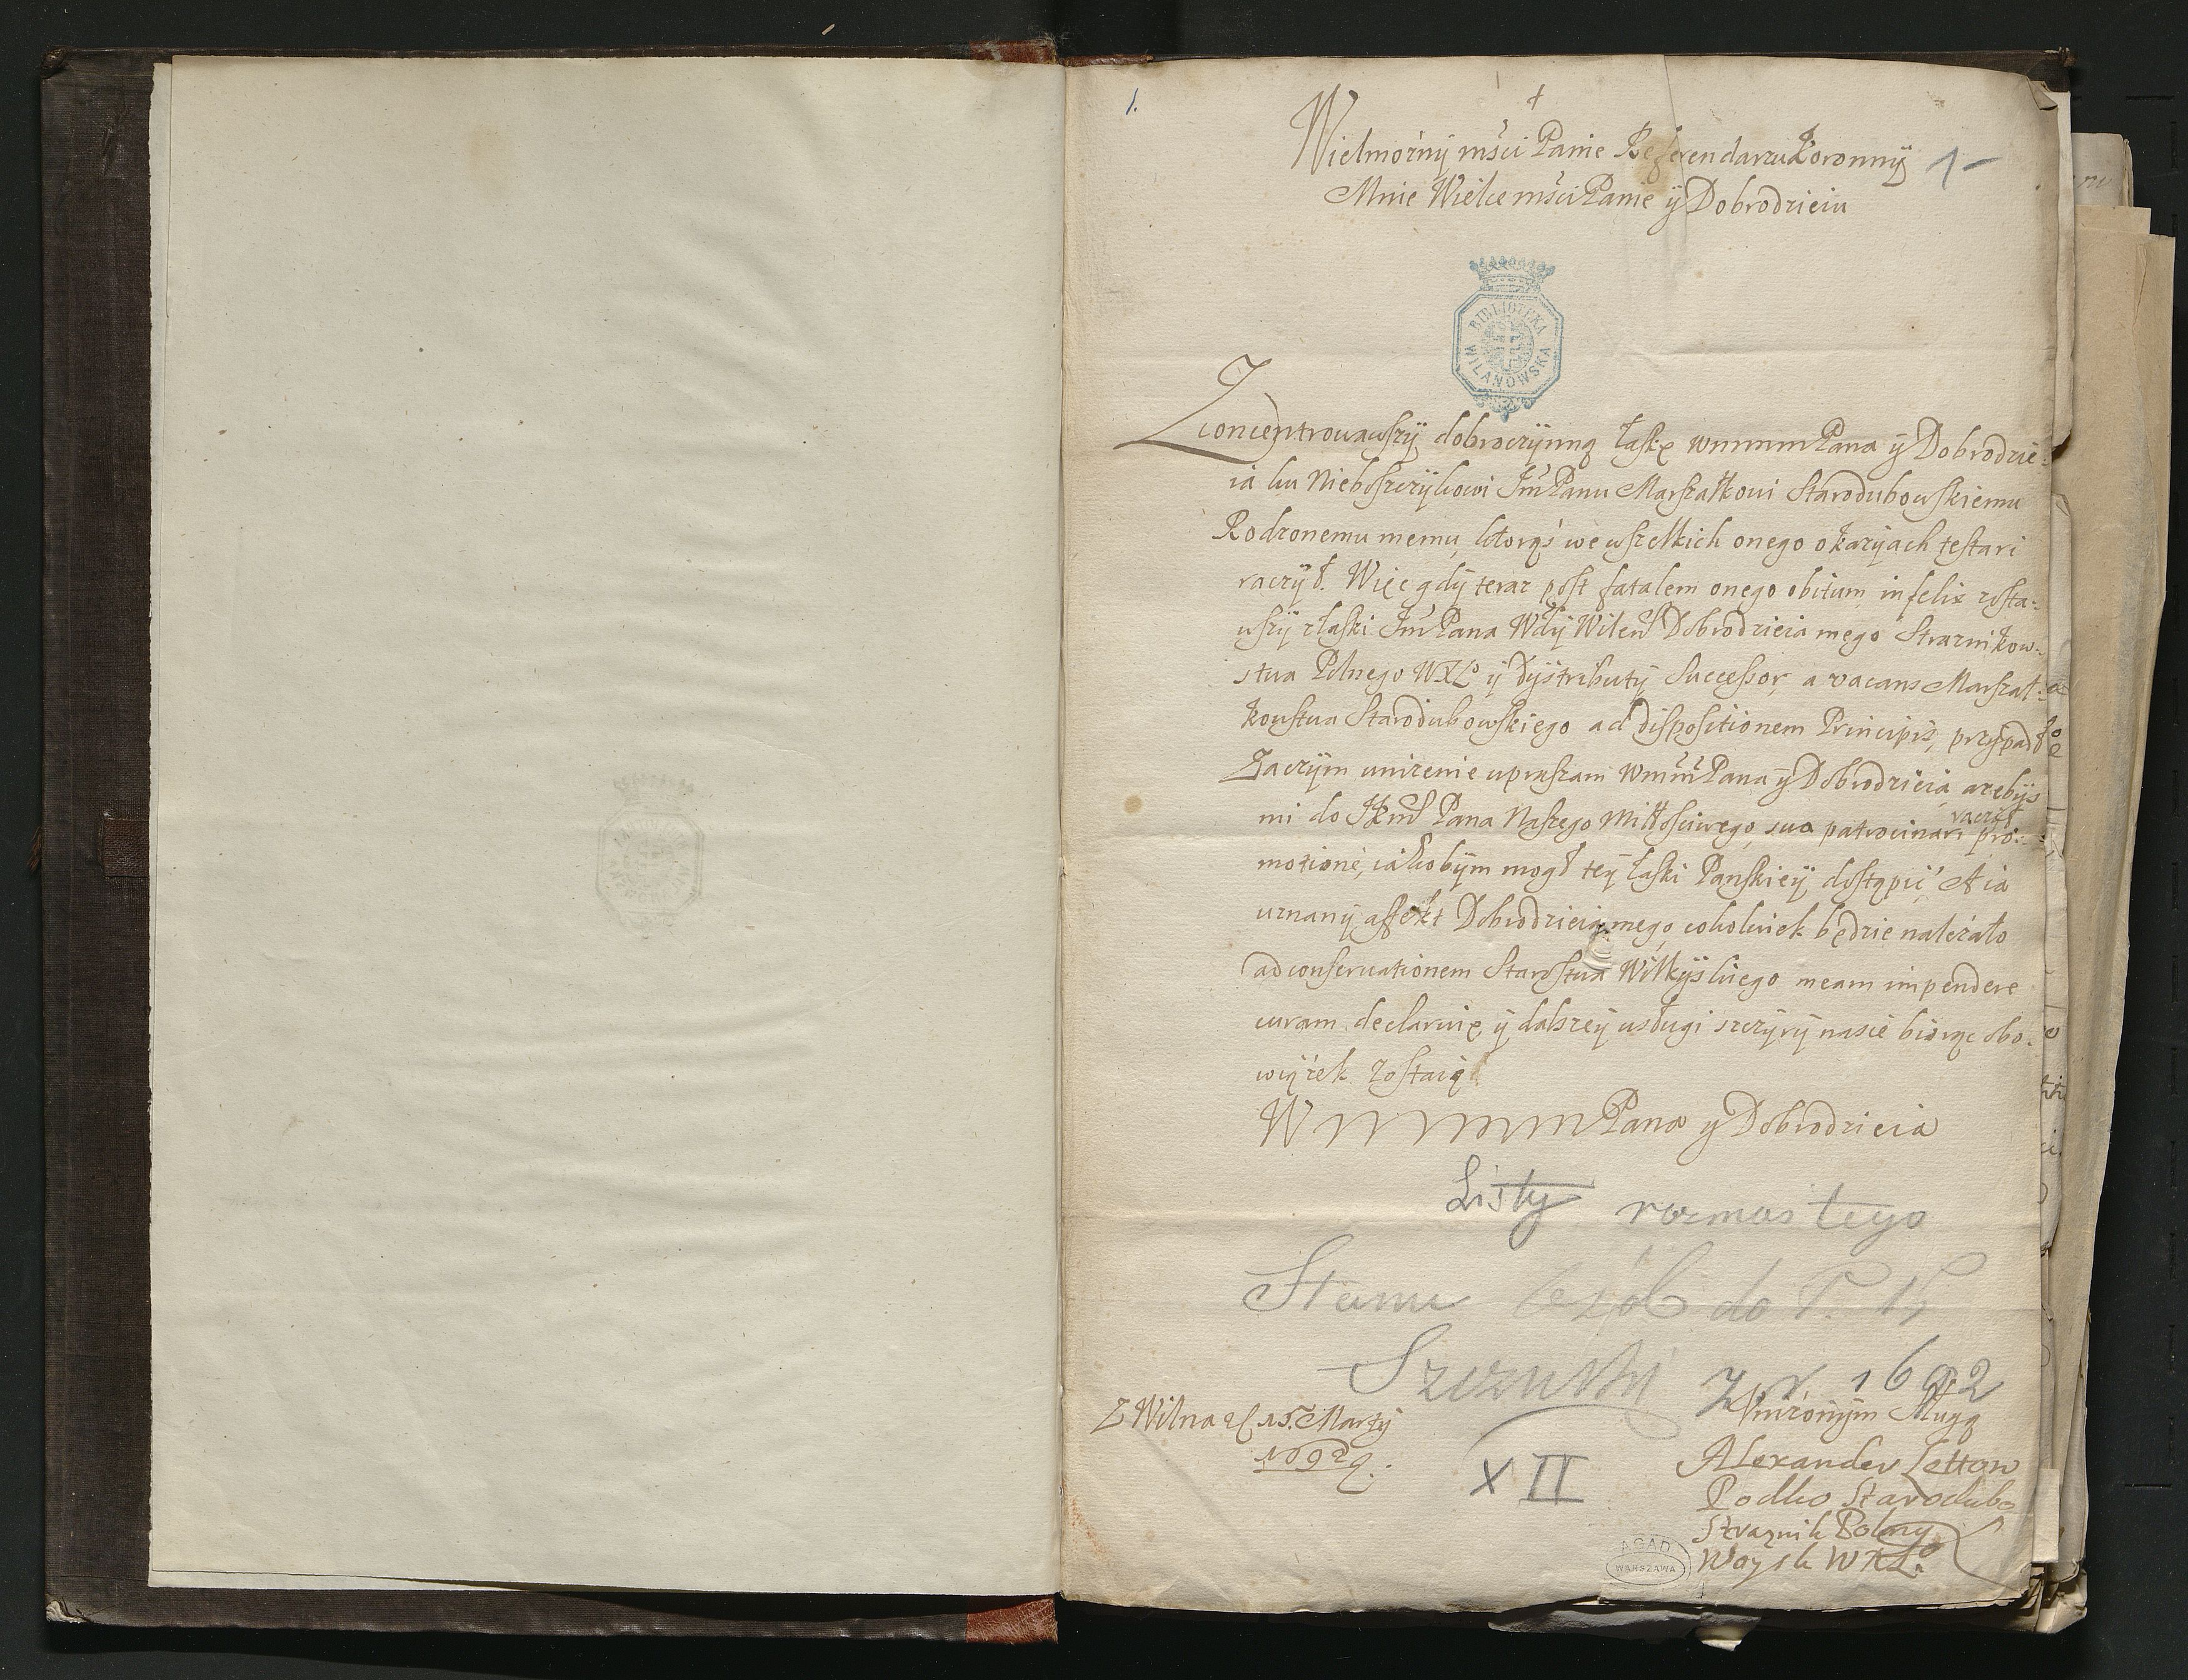 1.
+
Wielmożny mści Panie Referendarzu Koronny
1-
Mnie Wielce mści Panie ÿ Dobrodzieiu
BIBLIOTEKA
WILANOWSKA
Zconcentrowawszÿ dobroczÿnną łaskę WMMMPana ÿ Dobrodzie=
ia ku Nieboszczÿkowi JmPanu Marszałkowi Starodubowskiemu
Rodzonemu memu, ktorąś we wszelkich onego okazÿach testari
raczÿł. Więc gdÿ teraz post fatalem onego obitum infelix zosta=
wszÿ z łaski JmPana Wdÿ Wilen Dobrodzieia mego Strażnikow=
stwa Polnego WXLo ÿ dÿstributÿ Successor, a vacans Marszał=
kowstwa Starodubowskiego ad dispositionem Principis, przÿpadł
Zaczÿm uniżenie upraszam WMMPana ÿ Dobrodzieia, ażebÿś
mi do JKM Pana Naszego Miłłościwego, sua patrocinari raczÿł pro=
motione, iakobÿm mogł teÿ łaski Panskieÿ dostąpić. A ia
uznanÿ affekt Dobrodzieia mego, cokolwiek będzie należało
ad conservationem Starostwa Wilkÿskiego meam impendere
curam declaruię, ÿ dalszeÿ usługi szczÿrÿ nasie biorąc obo=
wiÿzek zostaię
WMMMPana ÿ Dobrodzieia
Listy rozmaitego
Stanu osób do
Szczuki z r 1692
Z Wilna d 15. Martÿ
1692
XII
Uniżonÿm Sługą
Alexander Lettow
Podko Starodubo
Strażnik Polny
Woysk WXLo
AGAD
WARSZAWA